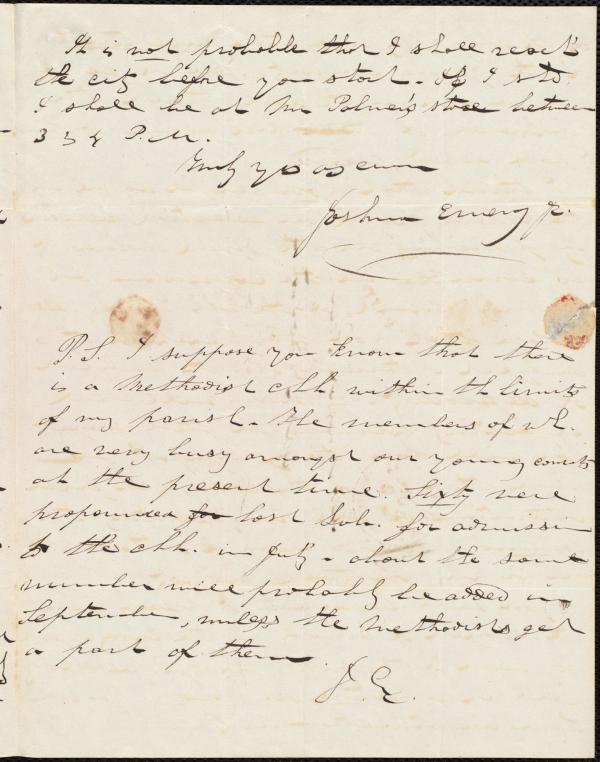 It is not probable that I shall reach
the city before you start. If I sh'd.
I shall be at Mr Palmer's store between
3 & 4 P.M.
Truly yrs as ever
Joshua Emery Jr.
P.S. I suppose you know that there
is a Methodist chh. within th limits
of my parish. The members of wh.
are very busy amongst our young converts
at the present time. Sixty were
propounded for last Sab. for admission
to the chh. in July - about the same
number will probably be added in
September, unless the Methodists get
a part of them.
J. E.